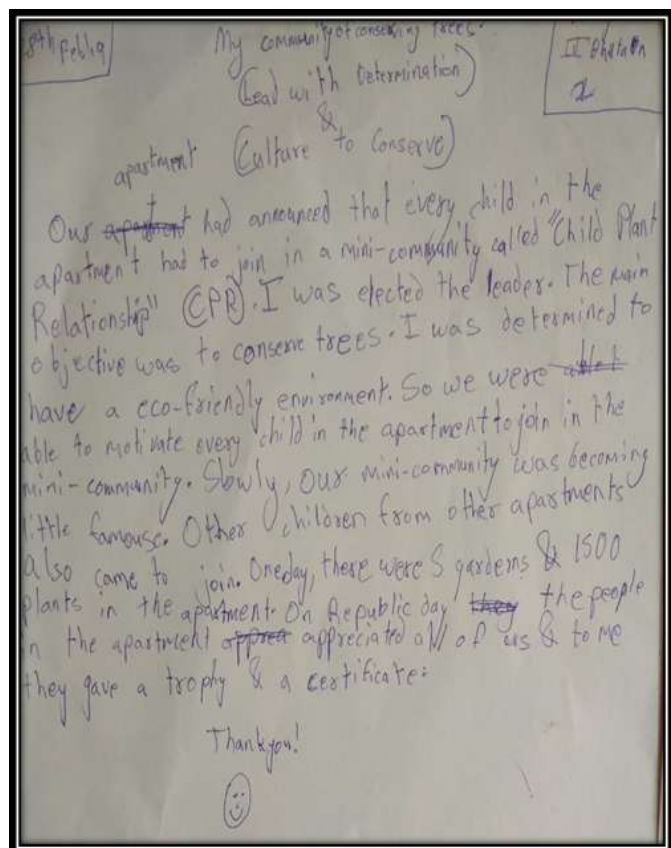 8th Feb 19
My community of conserving trees.
(Lead with Determination)
&
(Culture to Conserve)
apartment
Our apartment had announced that every child in the
apartment had to join in a mini-community called "Child Plant
Relationship" (CPR). I was elected the leader. The main
objective was to conserve trees. I was determined to
have a eco-friendly environment. So we were
able to motivate every child in the apartment to join in the
mini-community. Slowly, our mini-community was becoming
little famouse. Other children from other apartments
also came to join. Oneday, there were 5 gardens & 1500
plants in the apartment. On Republic day they the people
in the apartment apprea appreciated all of us & to me
they gave a trophy & a certificate.
Thankyou!